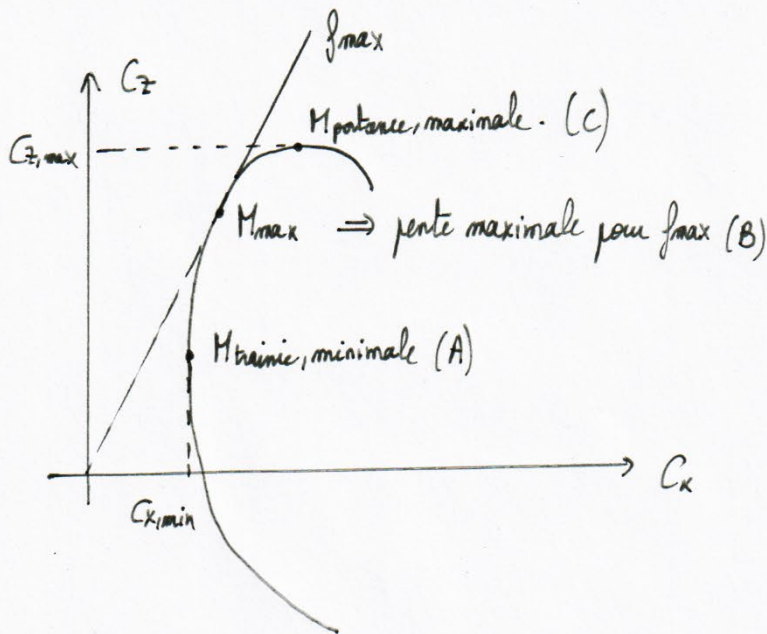 fmax
Cz
Mportance, maximale. (C)
Cz,max
Mmax ⇒ pente maximale pour fmax (B)
Mtrainie, minimale (A)
Cx
Cx,min